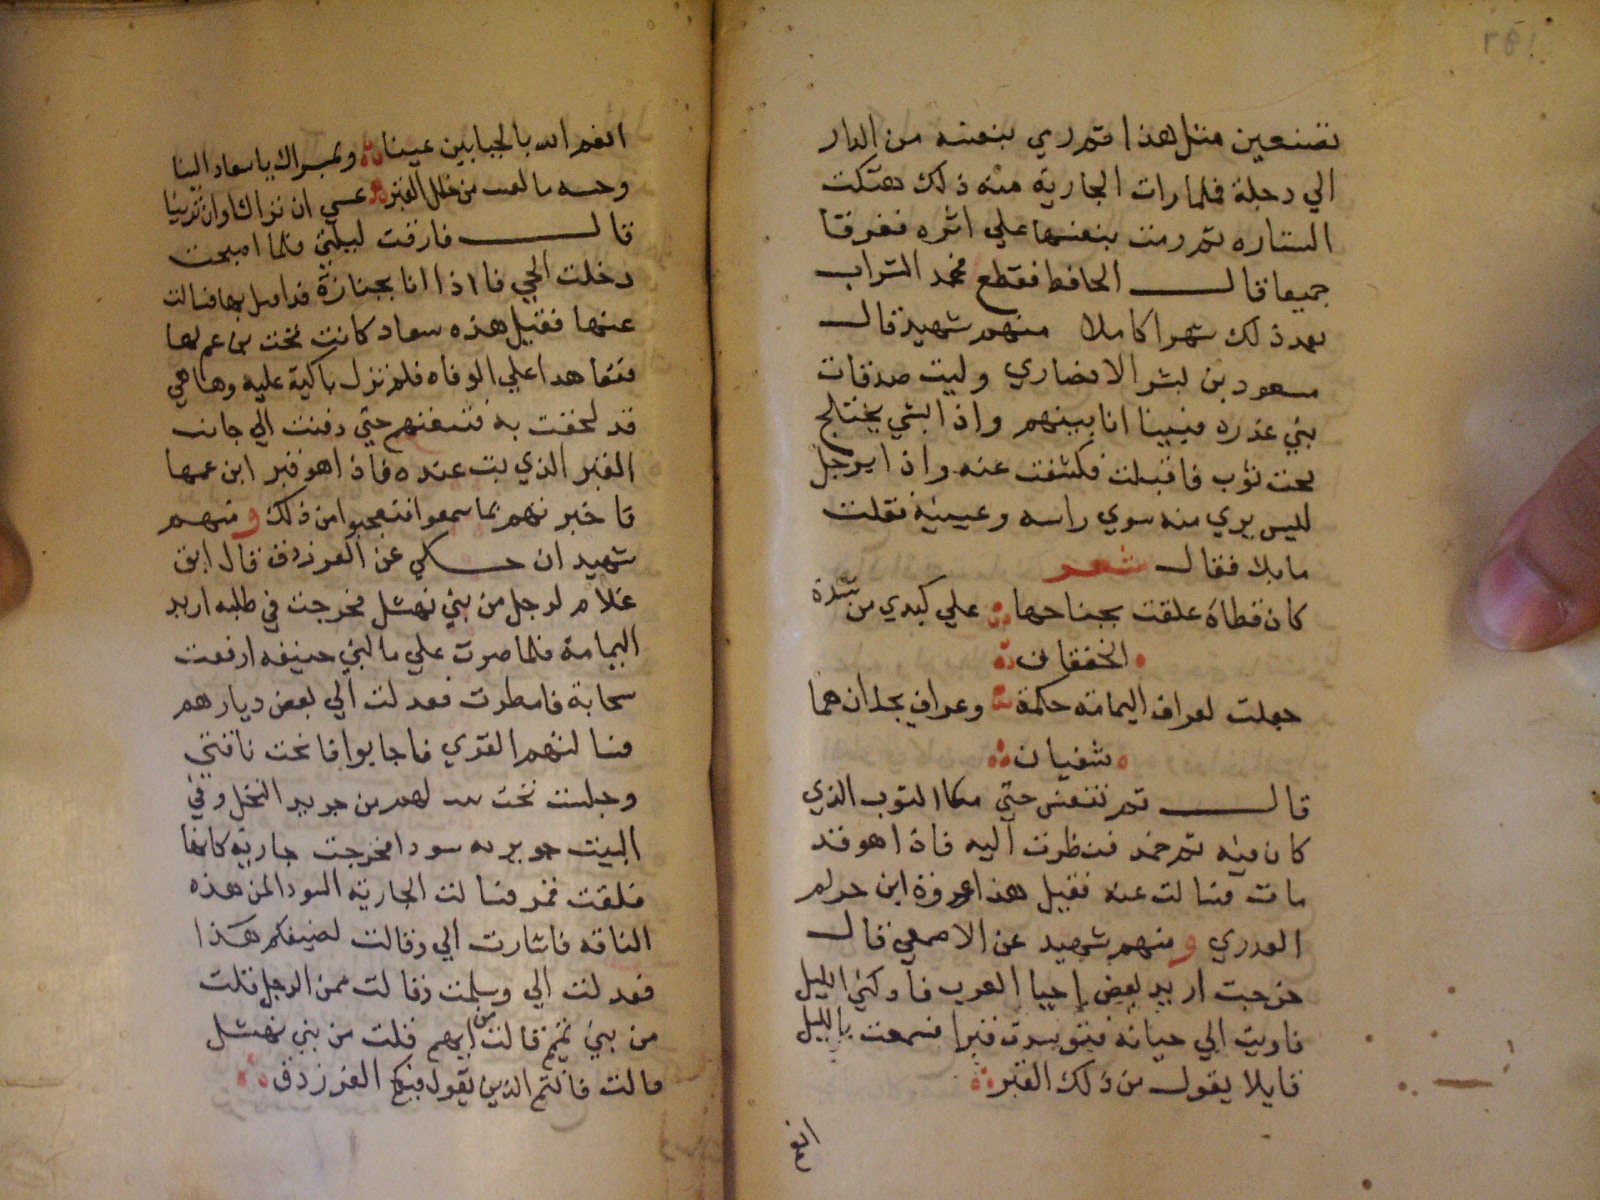 تصنعين مثل هذا ثم رمي بنفسه من الدار
الي دجلة فلما رات الجارية منه ذلك هتكت
الستاره ثم رمت بنفسها علي اثره فغرقا
جميعا قال الحافظ فقطع محمد الشراب
بعد ذلك شهرا كاملا منهم شهيد قال
مسعود بن بشر الانصاري وليت صدقات
بني عذره فبينا انا بينهم واذا بشي يختلج
تحت ثوب فاقبلت فكشفت عنه واذا برجل
ليس يري منه سوي راسه وعينيه فقلت
مابك فقال شعر
كان قطاة علقت بجناحها علي كبدي من شدة
الخفقان
جعلت لعراف اليمامه حكمة وعراف نجد ان هما
شفيان
قال ثم تنفس حتي ملا الثوب الذي
كان فيه ثم خمد فنظرت اليه فاذا هو قد
مات فسالت عنه فقيل هذا عروة ابن حزام
العذري ومنهم شهيد عن الاصمعي قال
خرجت اريد بعض إحيا العرب فادركني الليل
فاويت الي جبانه فتوسدت قبرا فسمعت بالليل
قايلا يقول من ذلك القبر
انعم
١٩٢
انعم الله بالحبابين عينا وبمسراك يا سعاد الينا
من خلل القبر عسي ان نراك او ان ترينا
قال فارقت ليلتي فلما اصبحت
دخلت الحي فاذا انا بجنازة قد اقبل بها فسالت
عنها فقيل هذه سعاد كانت تحت بن عم لها
فتعاهدا علي الوفاه فلم تزل باكية عليه وها هي
قد لحقت به فتبعتهم حتي دفنت الي جانب
القبر الذي بت عنده فاذا هو قبر ابن عمها
فاخبرتهم بما سمعوا فتعجبوا من ذلك ومنهم
شهيد ان حكي عن الفرزدق قال ابق
غلام لرجل من بني نهشل فخرجت في طلبه اريد
اليمامة فلما صرت علي ما لبني حنيفه ارفعت
سحابة فامطرت فعدلت الي بعض ديارهم
فسالتهم القري فاجابوا فانخت ناقتي
وجلست تحت بيت لهم من جريد النخل وفي
البيت جويريه سودا فخرجت جارية كانها
فلقت قمر فسالت الجارية السودا لمن هذه
الناقه فاشارت الي وقالت لضيفكم هذا
فعدلت الي وسلمت وقالت ممن الرجل قلت
من بني تميم قالت من ايهم قلت من بني نهشل
قالت فانتم الذين يقول فيكم الفرزدق